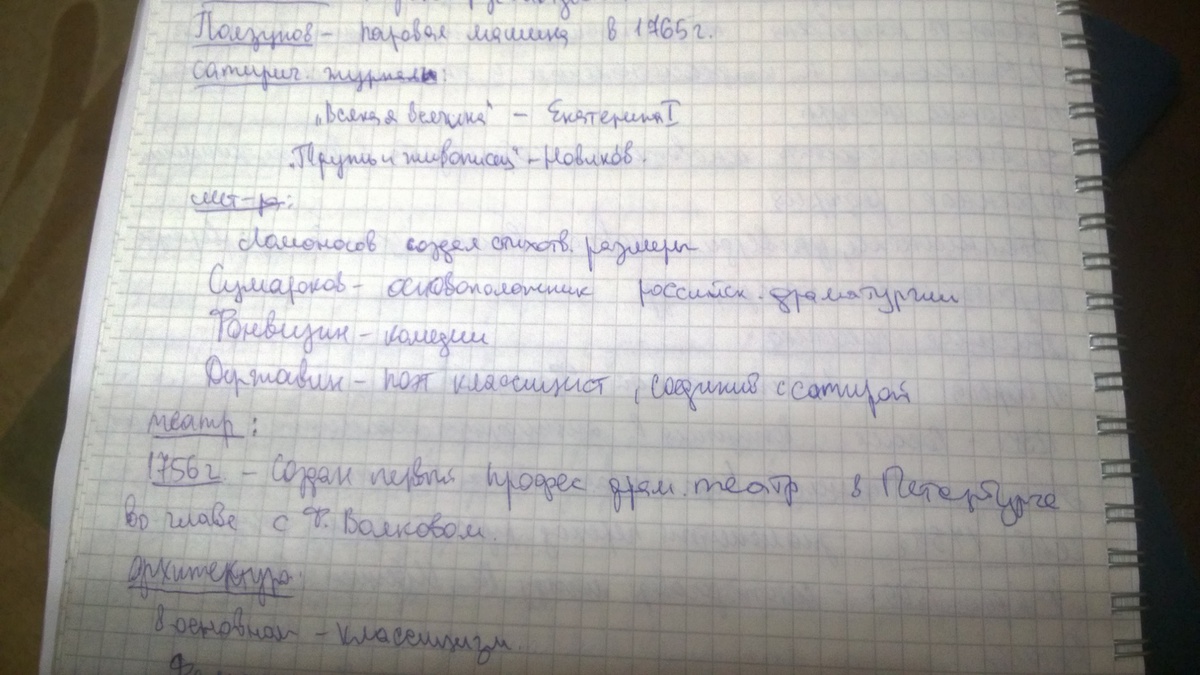 Ползунов – паровая машина в 1765 г.
сатирич. журналы:
„Всякая всячина" – Екатерина I
„Трутень и живописец" – Новиков.
лит-ра:
Ломоносов создал стихотв. размеры
Сумароков – основоположник российск. драматургии
Фонвизин – комедии
Державин – поэт классицист, соединил с сатирой
театр:
1756 г. – Создан первый профес драм. театр в Петербурге
во главе с Ф. Волковом.
архитектура
в основном – классицизм.